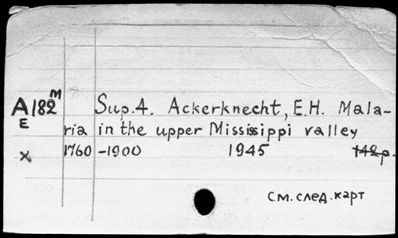 A182м Sup.4. Ackerknecht, E.H. Mala-
E ria in the upper Mississippi valley
x 1760-1900 1945 142p.
См.след.карт